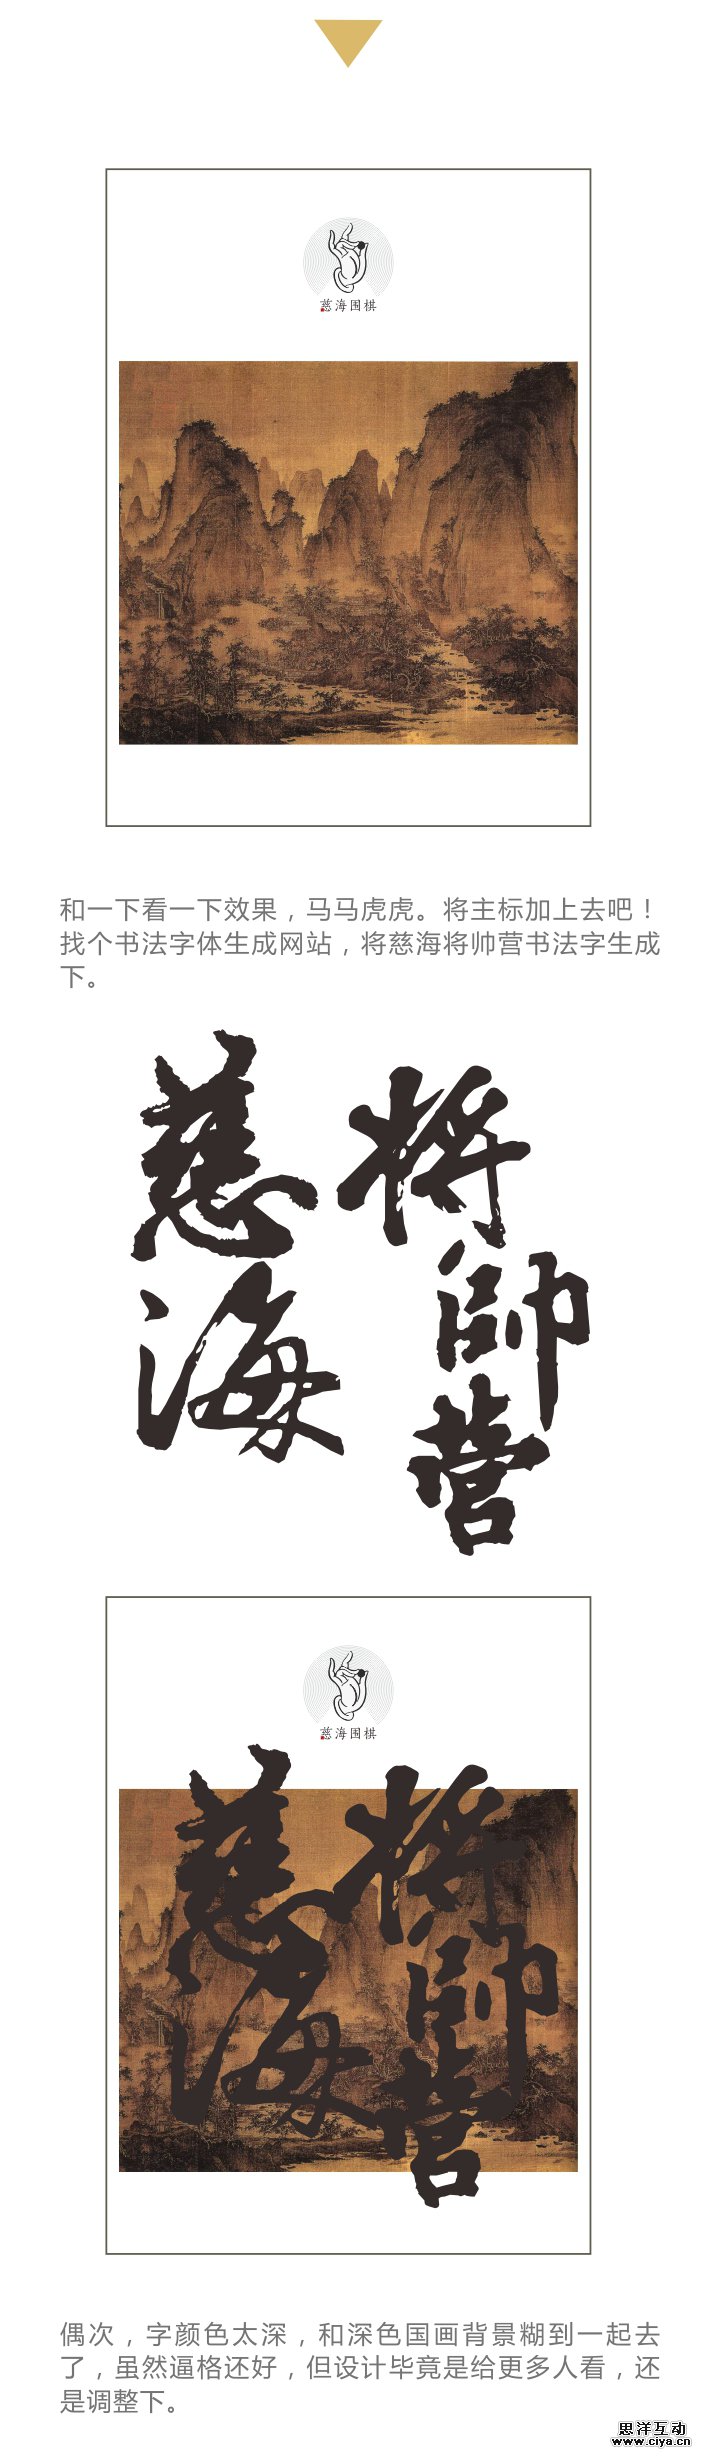 慈海围棋
和一下看一下效果，马马虎虎。将主标加上去吧！
找个书法字体生成网站，将慈海将帅营书法字生成
下。
慈海
将帥营
慈海围棋
慈海
将帥营
偶次，字颜色太深，和深色国画背景糊到一起去
了，虽然逼格还好，但设计毕竟是给更多人看，还
是调整下。
思洋互动
www.ciya.cn